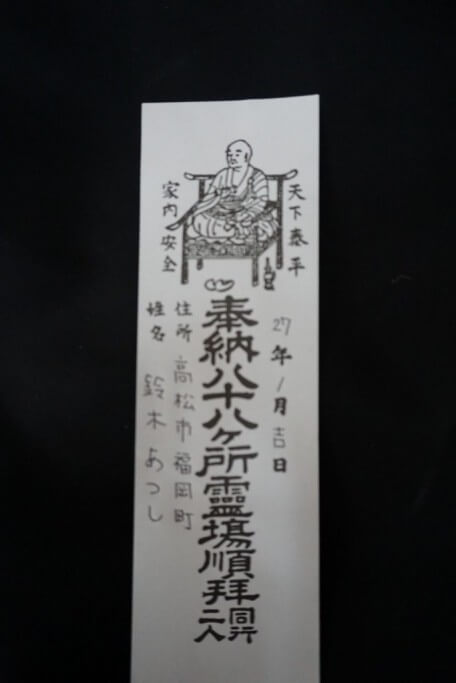 天下泰平
家内安全
27年1月吉日
奉納八十八ヶ所霊場順拝同行二人
住所 高松市福岡町
姓名 鈴木あつし